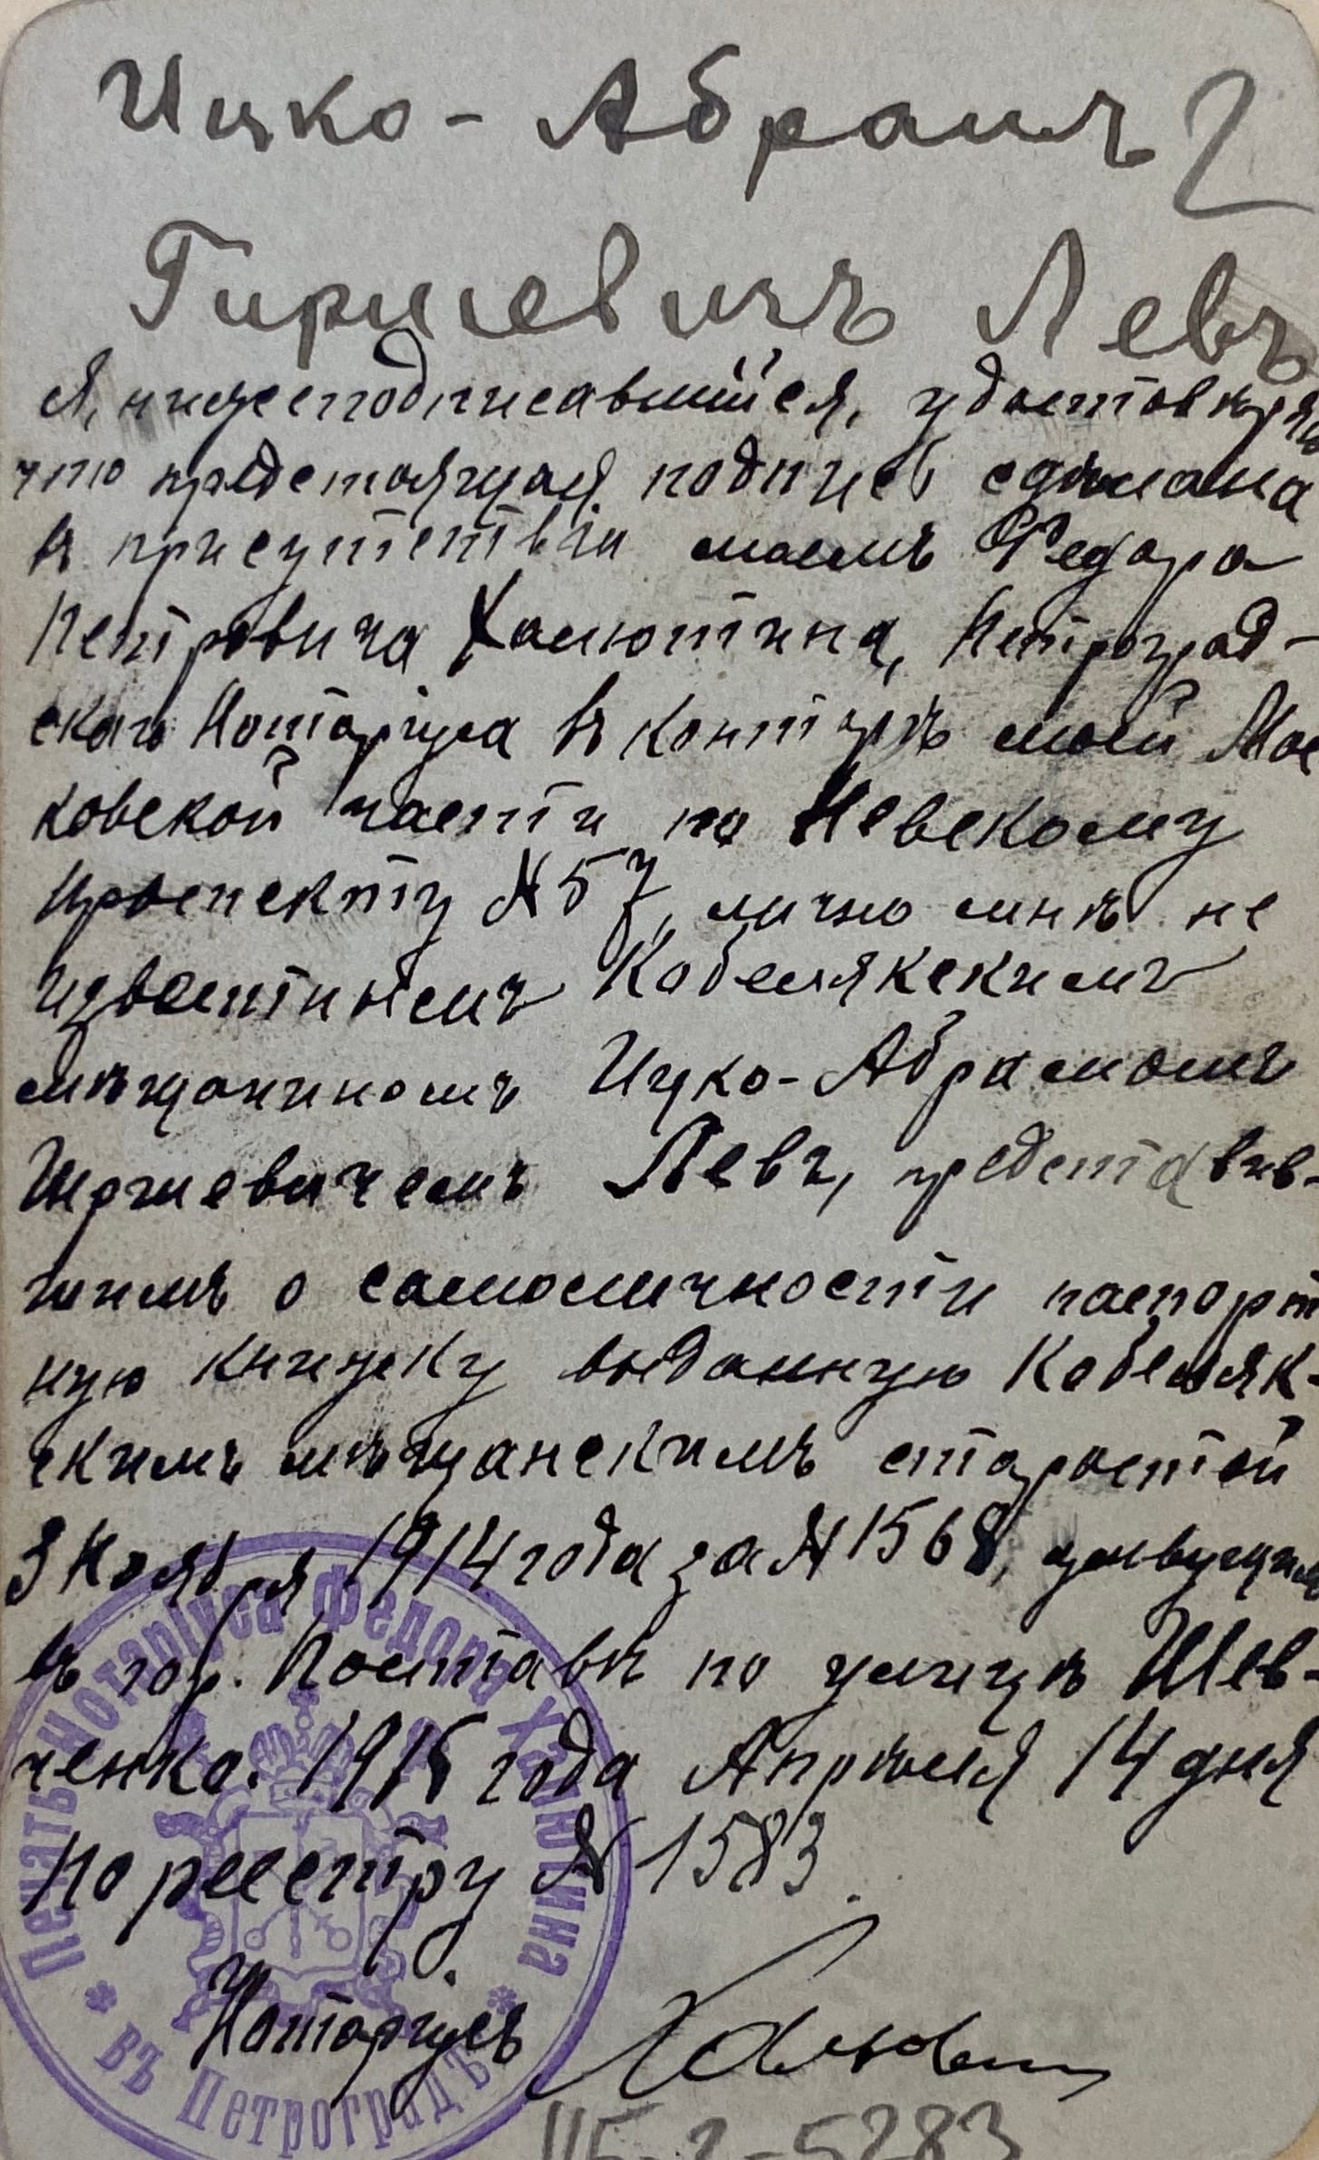 Ицко-Абрамъ 2
Гиршевичъ Левъ
Я, нижеподписавшiйся, удостовѣряю
что предстоящая подпись сдѣлана
въ присутствiи моемъ Федора
Петровича Халютина, Петроград-
скаго Нотарiуса въ конторѣ моей Мос
ковской части по Невскому
проспекту №57, лично мнѣ не
извѣстнымъ Кобелякскимъ
мѣщаниномъ Ицко-Абрамомъ
Гиршевичемъ Левъ, представив-
шимъ о самоличности паспорт
ную книжку выданную Кобеляк-
скимъ мѣщанскимъ старостой
3 Ноября 1914 года за №1568, живущимъ
въ гор. Полтавѣ по улицѣ Шев-
ченко. 1915 года Апрѣля 14 дня
По реестру № 1583.
Нотарiусъ
Печать Нотарiуса Федора Халютина
* въ Петроградѣ *
115-2-5283